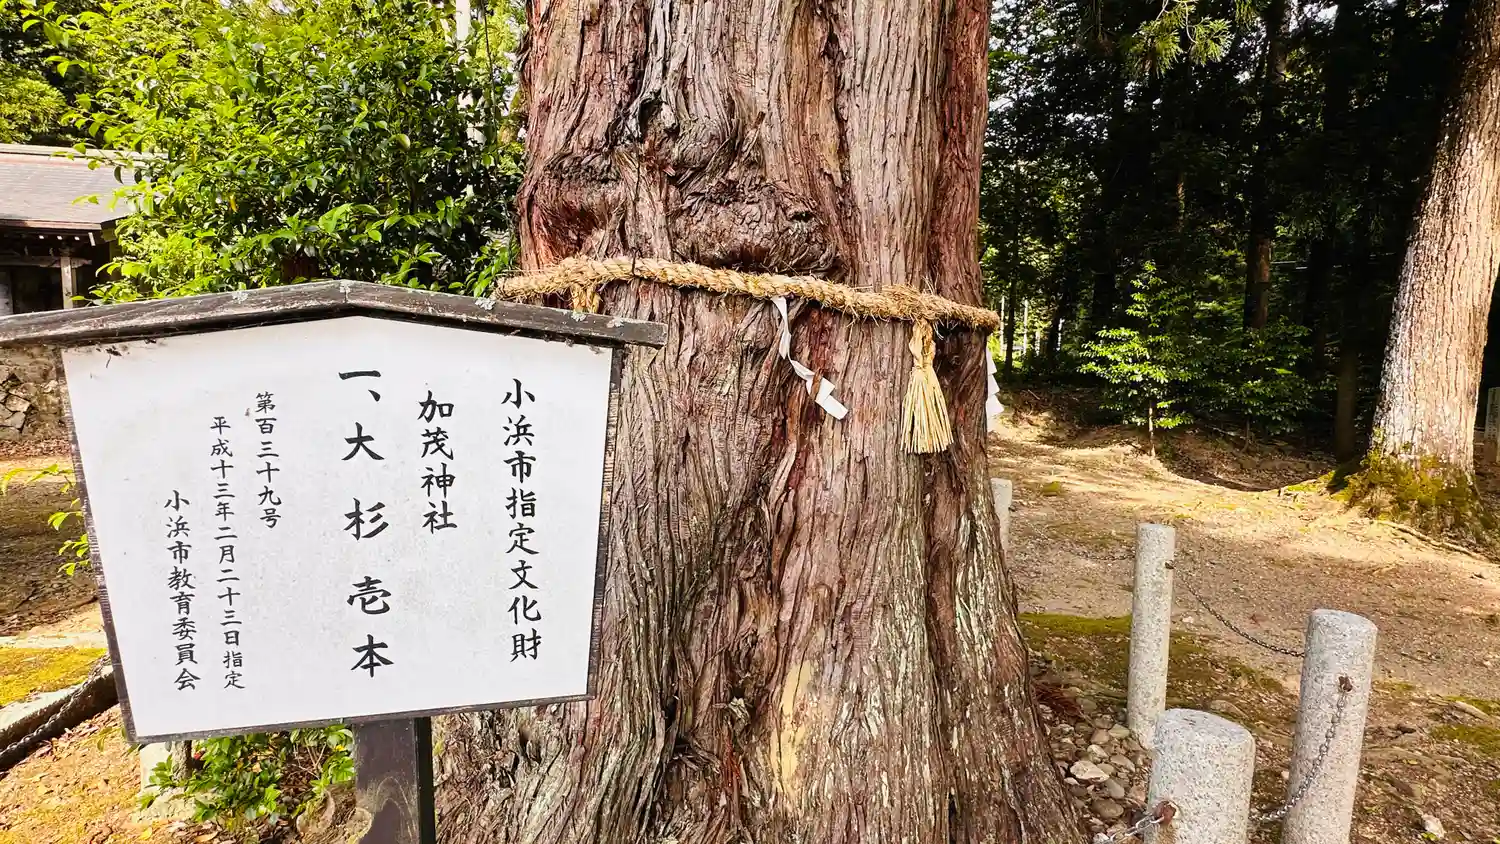 小浜市指定文化財
加茂神社
一、大杉壱本
第百三十九号
平成十三年二月二十三日指定
小浜市教育委員会